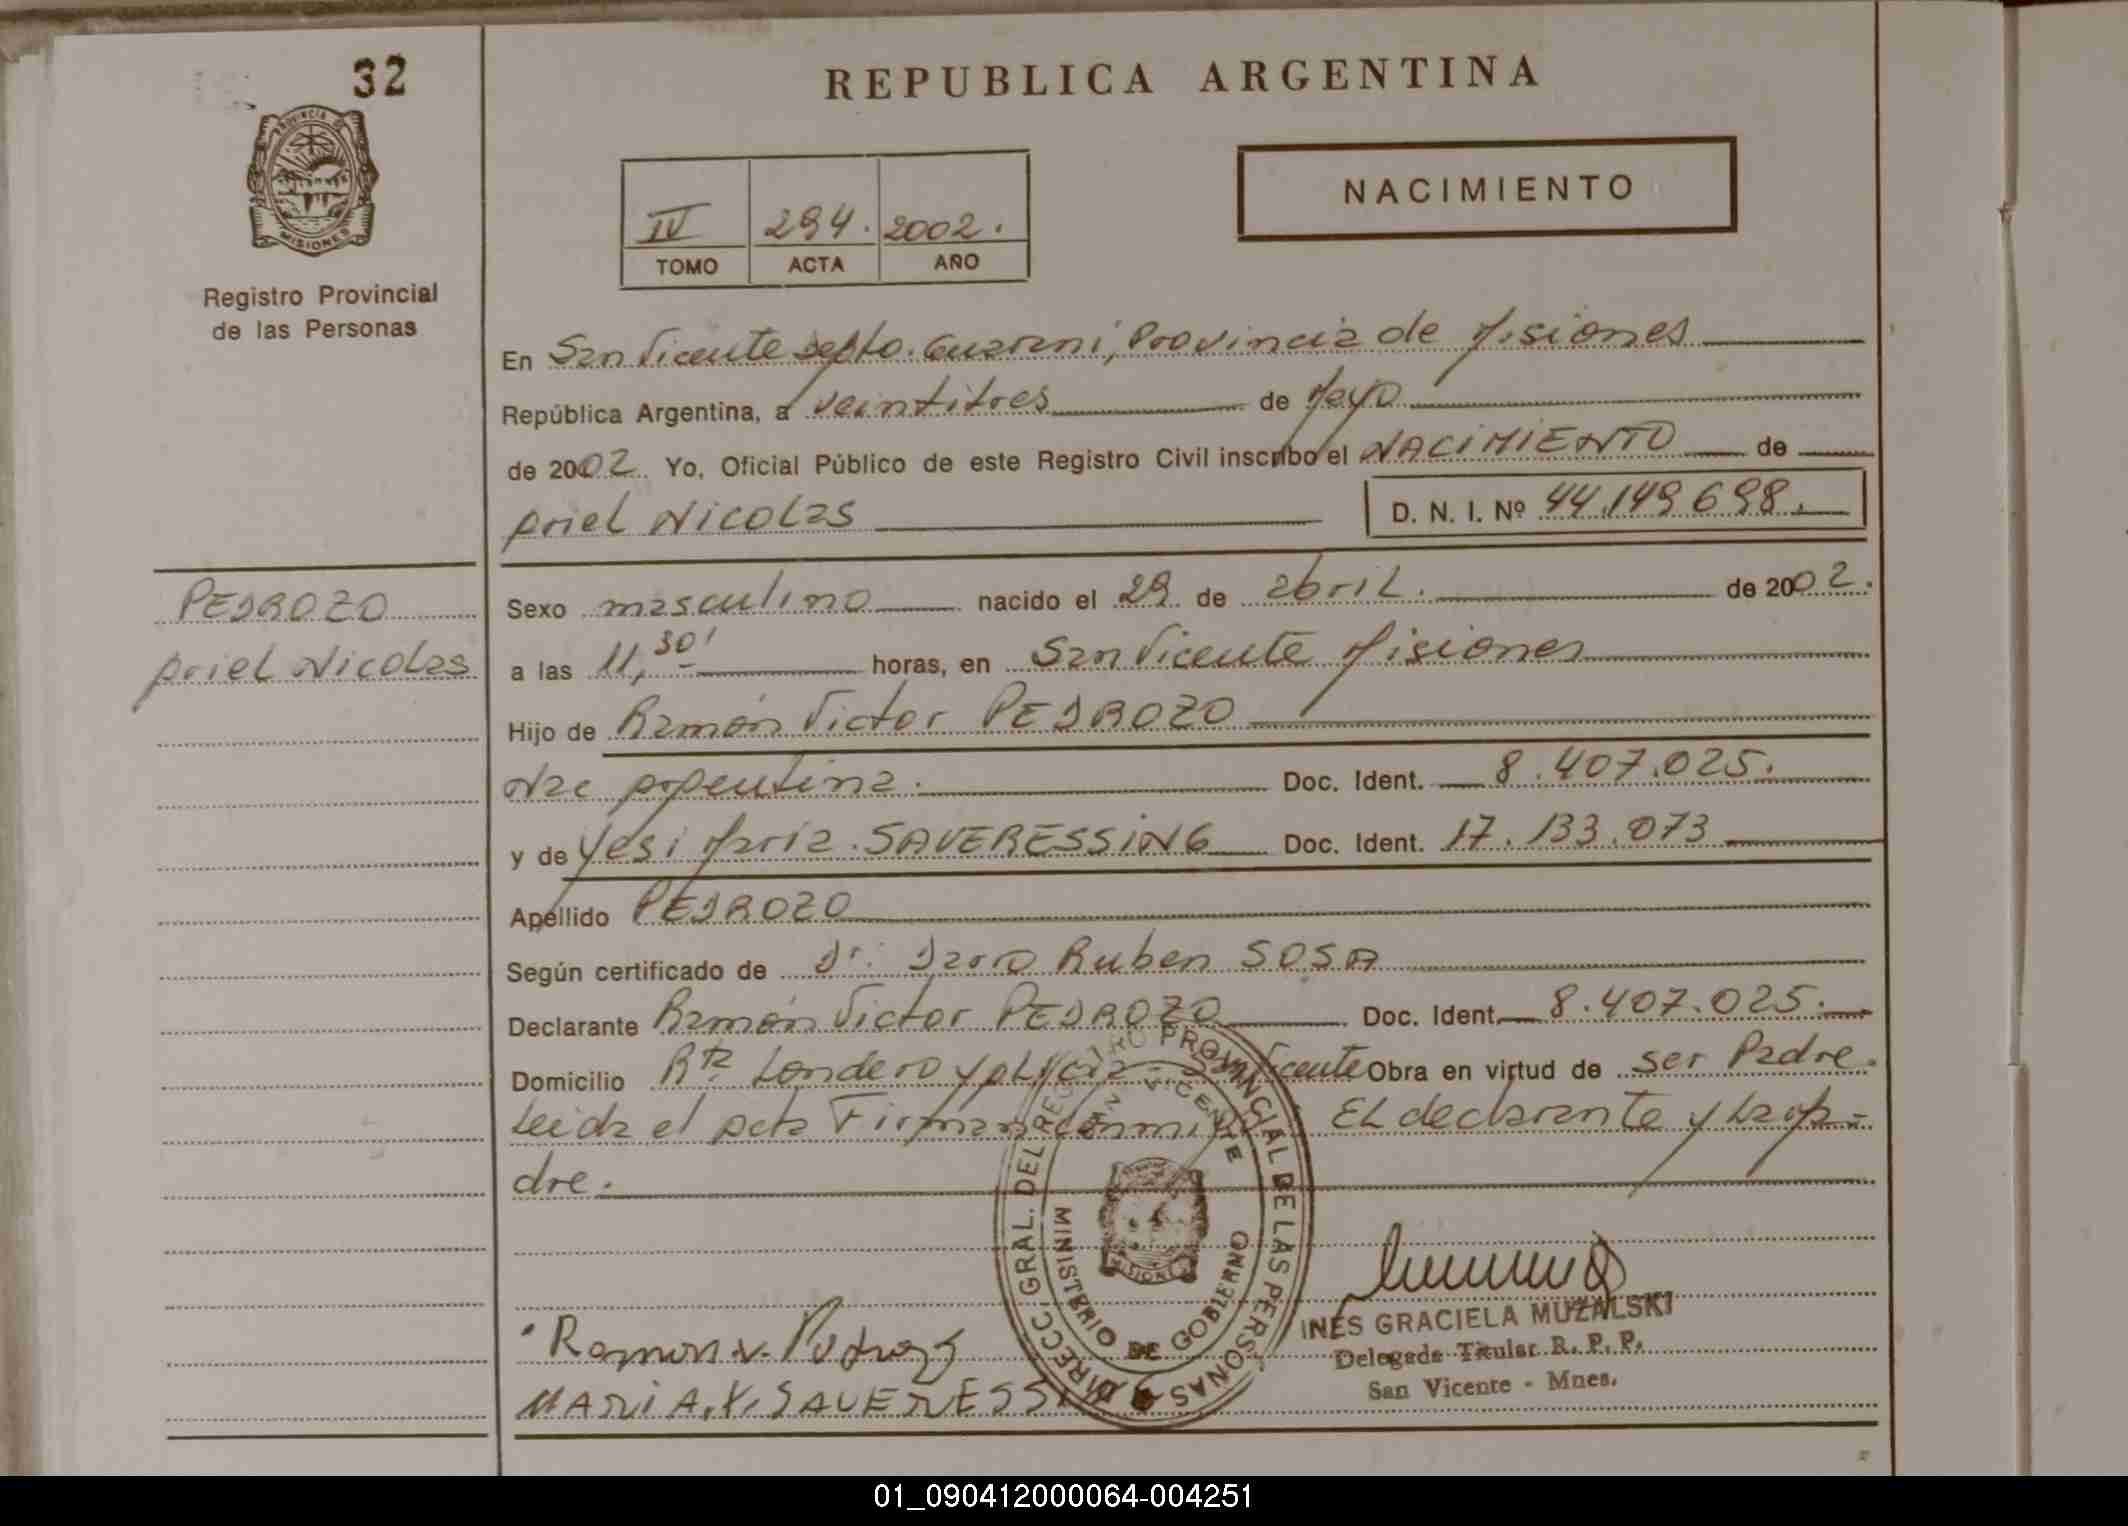 32
PROVINCIA DE
MISIONES
Registro Provincial
de las Personas
PEDROZO
Ariel Nicolas
REPUBLICA ARGENTINA
NACIMIENTO
IV 294. 2002.
TOMO ACTA AÑO
En San Vicente Depto. Guarani, Provincia de Misiones
República Argentina, a veintitres de Mayo
de 2002 Yo, Oficial Público de este Registro Civil inscribo el NACIMIENTO de
Ariel Nicolas D. N. I. Nº 44.149.698.
Sexo masculino nacido el 29 de abril. de 2002.
a las 11,30' horas, en San Vicente Misiones
Hijo de Ramón Victor PEDROZO
Nac Argentina. Doc. Ident. 8.407.025.
y de Yesi María SAVERESSING Doc. Ident. 17.133.073
Apellido PEDROZO
Según certificado de Dr. Dario Ruben SOSA
Declarante Ramón Victor PEDROZO Doc. Ident. 8.407.025.
Domicilio Rta Londero y Obra en virtud de ser Padre.
Leida el acta Firman conmigo El declarante y la ma-
dre.
DIRECC. GRAL. DEL REGISTRO PROVINCIAL DE LAS PERSONAS
SAN VICENTE
MISIONES
MINISTERIO DE GOBIERNO
Ramon v. Pedrozo
MARIA. Y. SAVERESSING
INES GRACIELA MUZALSKI
Delegada Titular R. P. P.
San Vicente - Mnes.
01_090412000064-004251